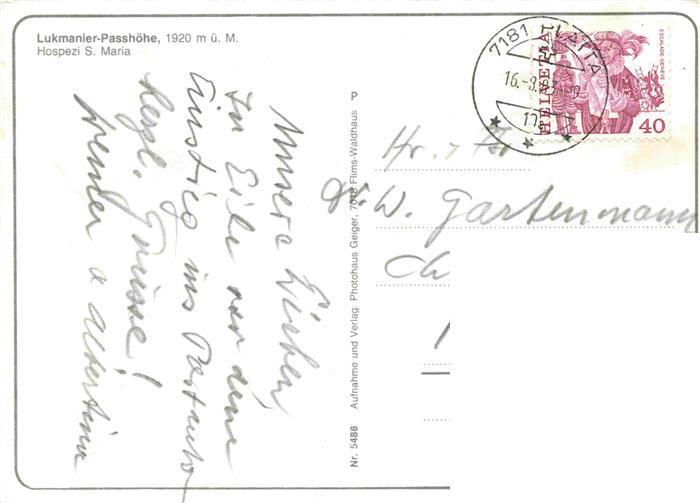 Lukmanier-Passhöhe, 1920 m ü. M.
Hospezi S. Maria
Unsere Lieben,
In Eile vor dem
Einstieg ins Postauto
Herzl. Grüsse!
a Albertina
P
Nr. 5488 Aufnahme und Verlag: Photohaus Geiger, 7018 Flims-Waldhaus
7181
HELVETIA
ESCALADE GENÈVE
40
Hr.
W. Gartenmann